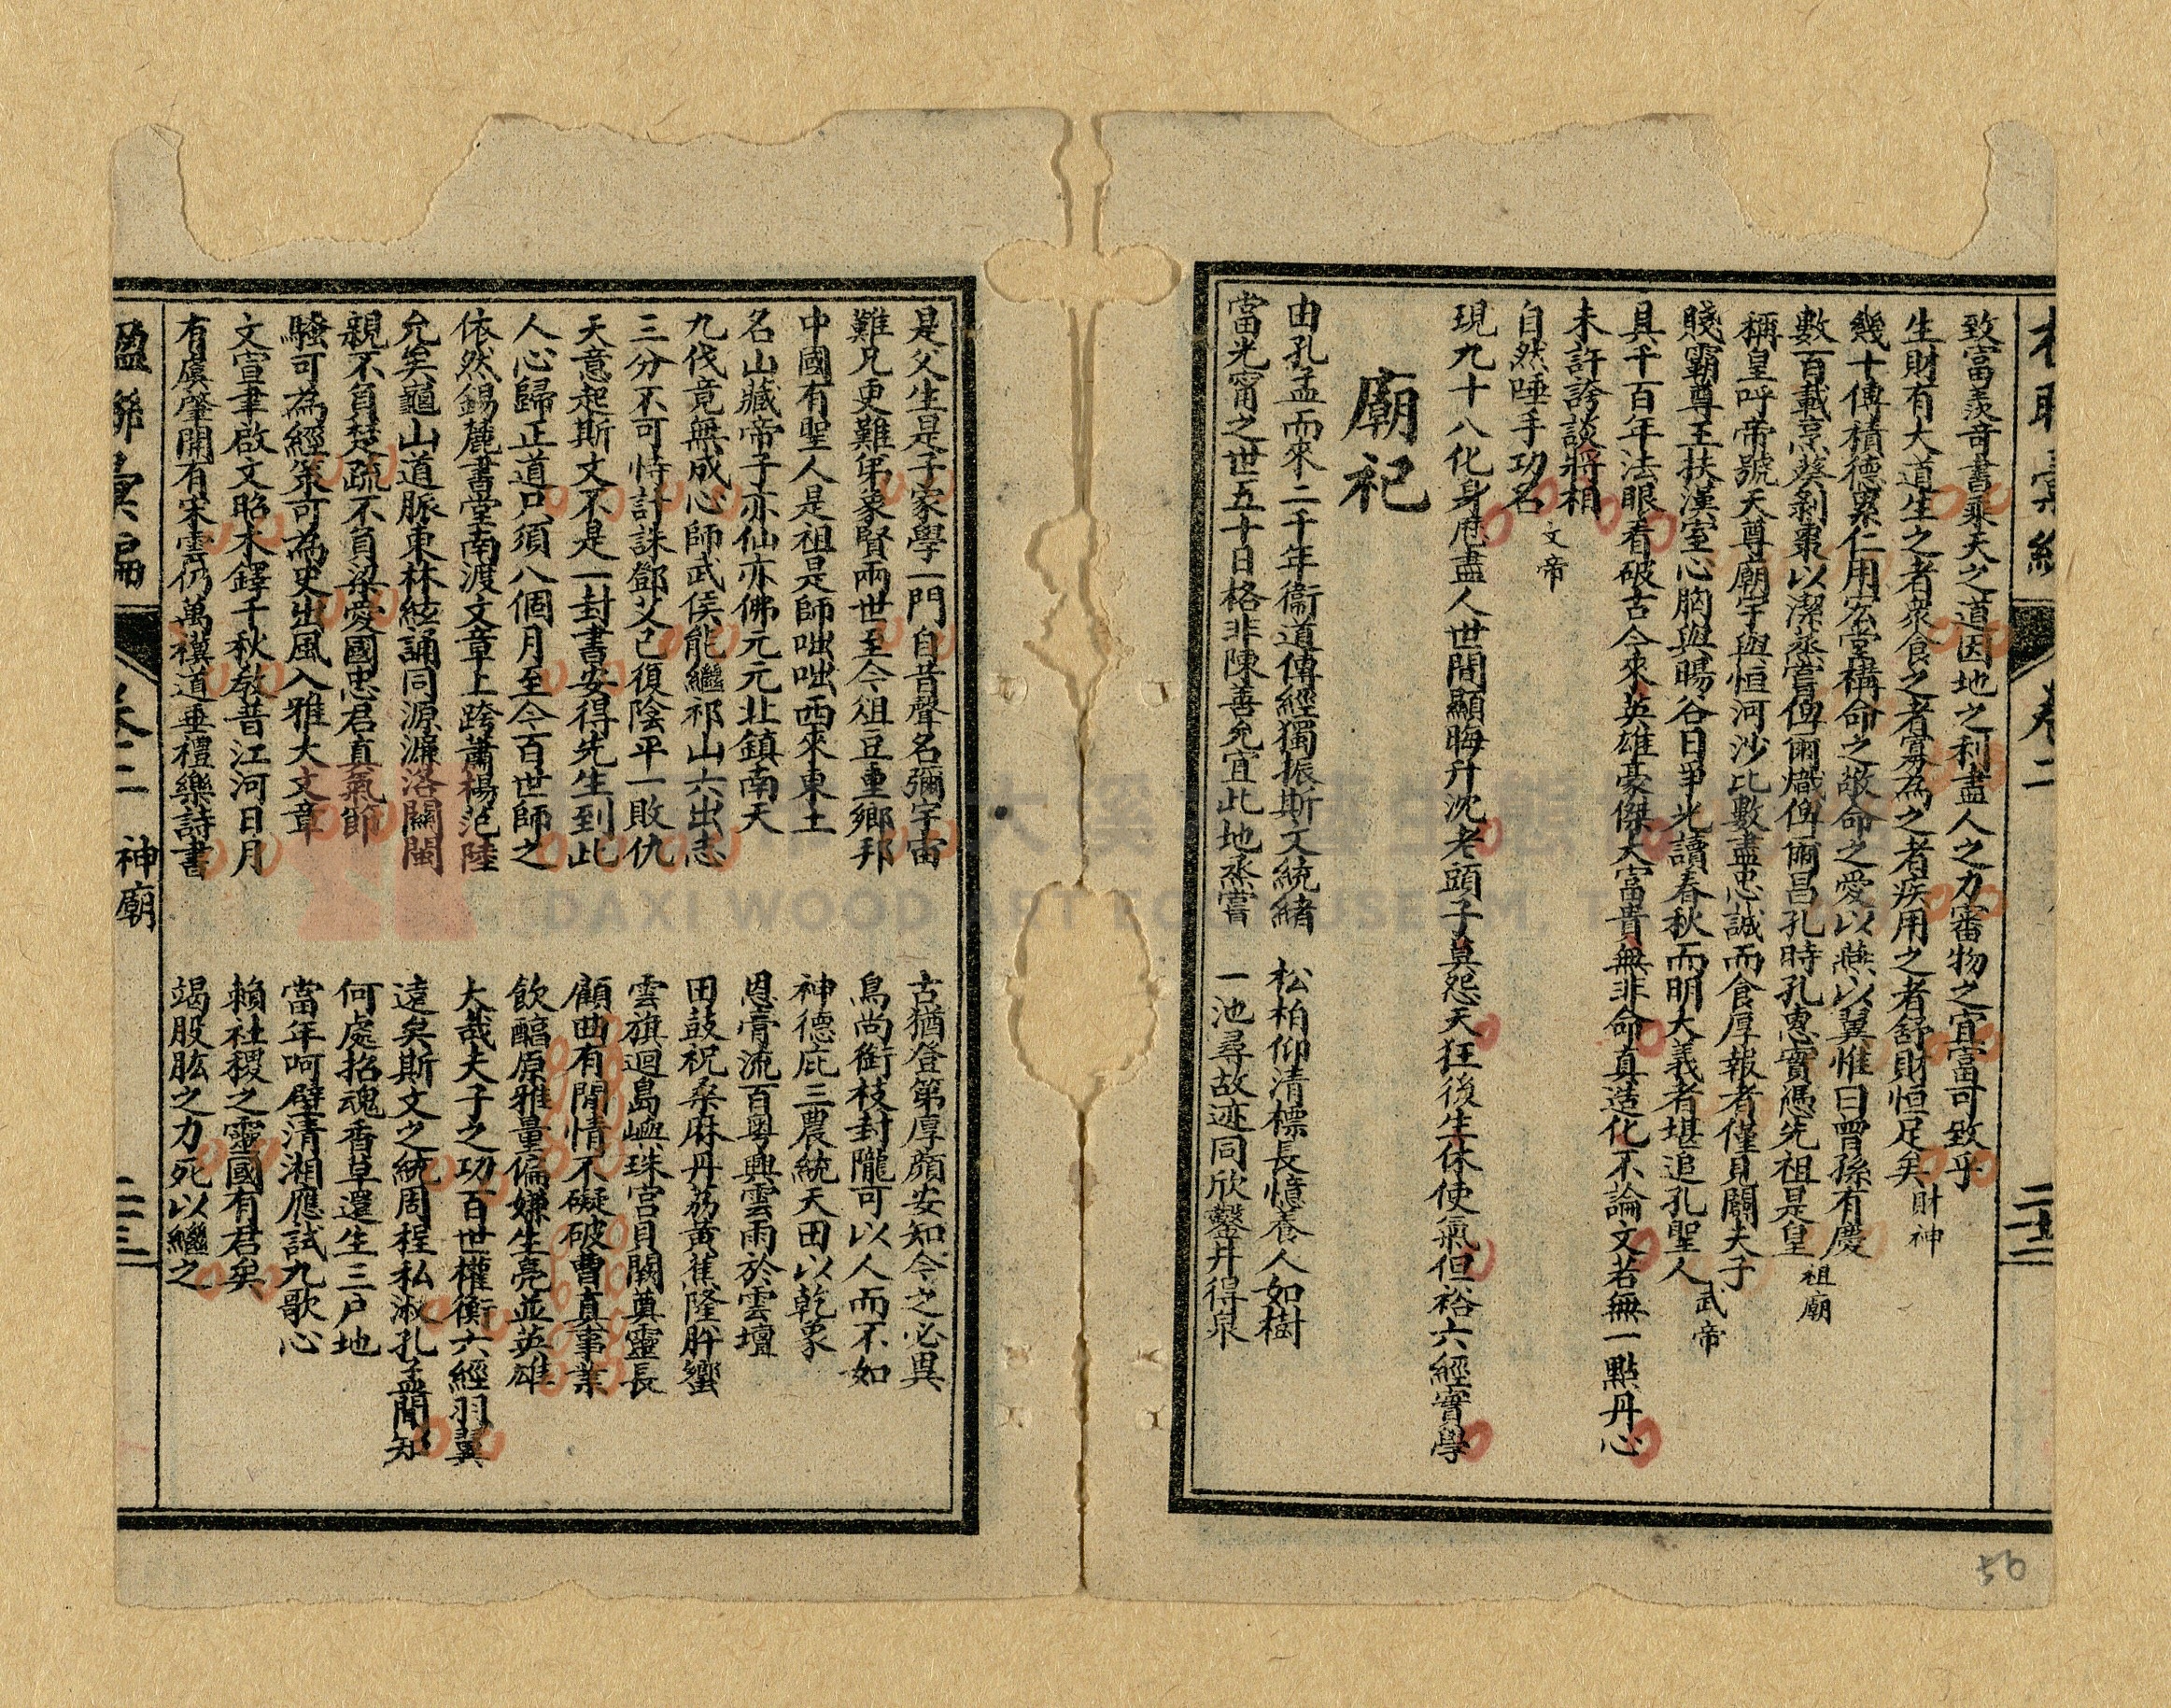 致富羨奇書乘天之道因地之利盡人之力審物之宜富可致乎
生財有大道生之者衆食之者寡為之者疾用之者舒財恒足矣 財神
幾十傳積德累仁用宏堂構命之敬命之愛以燕以翼惟曰曾孫有慶
數百載烹葵剝棗以潔烝嘗俾爾熾俾爾昌孔時孔惠實憑先祖是皇 祖廟
稱皇呼帝號天尊廟宇與恒河沙比數盡忠誠而食厚報者僅見關夫子
賤霸尊王扶漢室心胸與暘谷日爭光讀春秋而明大義者堪追孔聖人 武帝
具千百年法眼看破古今來英雄豪傑大富貴無非命真造化不論文若無一點丹心
未許誇談將相
自然唾手功名 文帝
現九十八化身歷盡人世間顯晦升沈老頭子莫怨天狂後生休使氣但裕六經實學
廟祀
由孔孟而來二千年衞道傳經獨振斯文統緒 松柏仰清標長憶養人如樹
當光甯之世五十日格非陳善允宜此地烝嘗 一池尋故迹同欣鑿井得泉
是父生是子家學一門自昔聲名彌宇宙 古猶登第厚顏安知今之必異
難兄更難弟象賢兩世至今俎豆重鄉邦 鳥尚銜枝封隴可以人而不如
中國有聖人是祖是師咄咄西來東土 神德庇三農統天田以乾象
名山藏帝子亦仙亦佛元元北鎮南天 恩膏流百粵興雲雨於雲壇
九伐竟無成心師武侯能繼祁山六出志 田鼓祝桑麻丹荔黃蕉隆肸蠁
三分不可恃計誅鄧艾已復陰平一敗仇 雲旗迴島嶼珠宮貝闕奠靈長
天意起斯文不是一封書安得先生到此 顧曲有閒情不礙破曹真事業
人心歸正道只須八個月至今百世師之 飲醇原雅量偏嫌生亮並英雄
依然錫麓書堂南渡文章上跨蕭楊范陸 大哉夫子之功百世權衡六經羽翼
允矣龜山道脈東林絃誦同源濂洛關閩 遠矣斯文之統周程私淑孔孟聞知
親不負楚疏不負梁愛國忠君真氣節 何處招魂香草還生三戶地
騷可為經策可為史出風入雅大文章 當年呵壁清湘應試九歌心
文宣聿啟文昭木鐸千秋教普江河日月 賴社稷之靈國有君矣
有虞肇開有宋雲仍萬禩道垂禮樂詩書 竭股肱之力死以繼之
楹聯彙編 卷二 神廟 二三